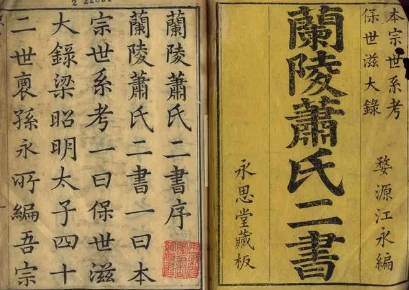 本宗世系考
保世滋大錄
蘭陵蕭氏二書
婺源江永編
永思堂藏板
蘭陵蕭氏二書序
蘭陵蕭氏二書一曰本
宗世系考一曰保世滋
大錄梁昭明太子四十
二世裔孫永所編吾宗